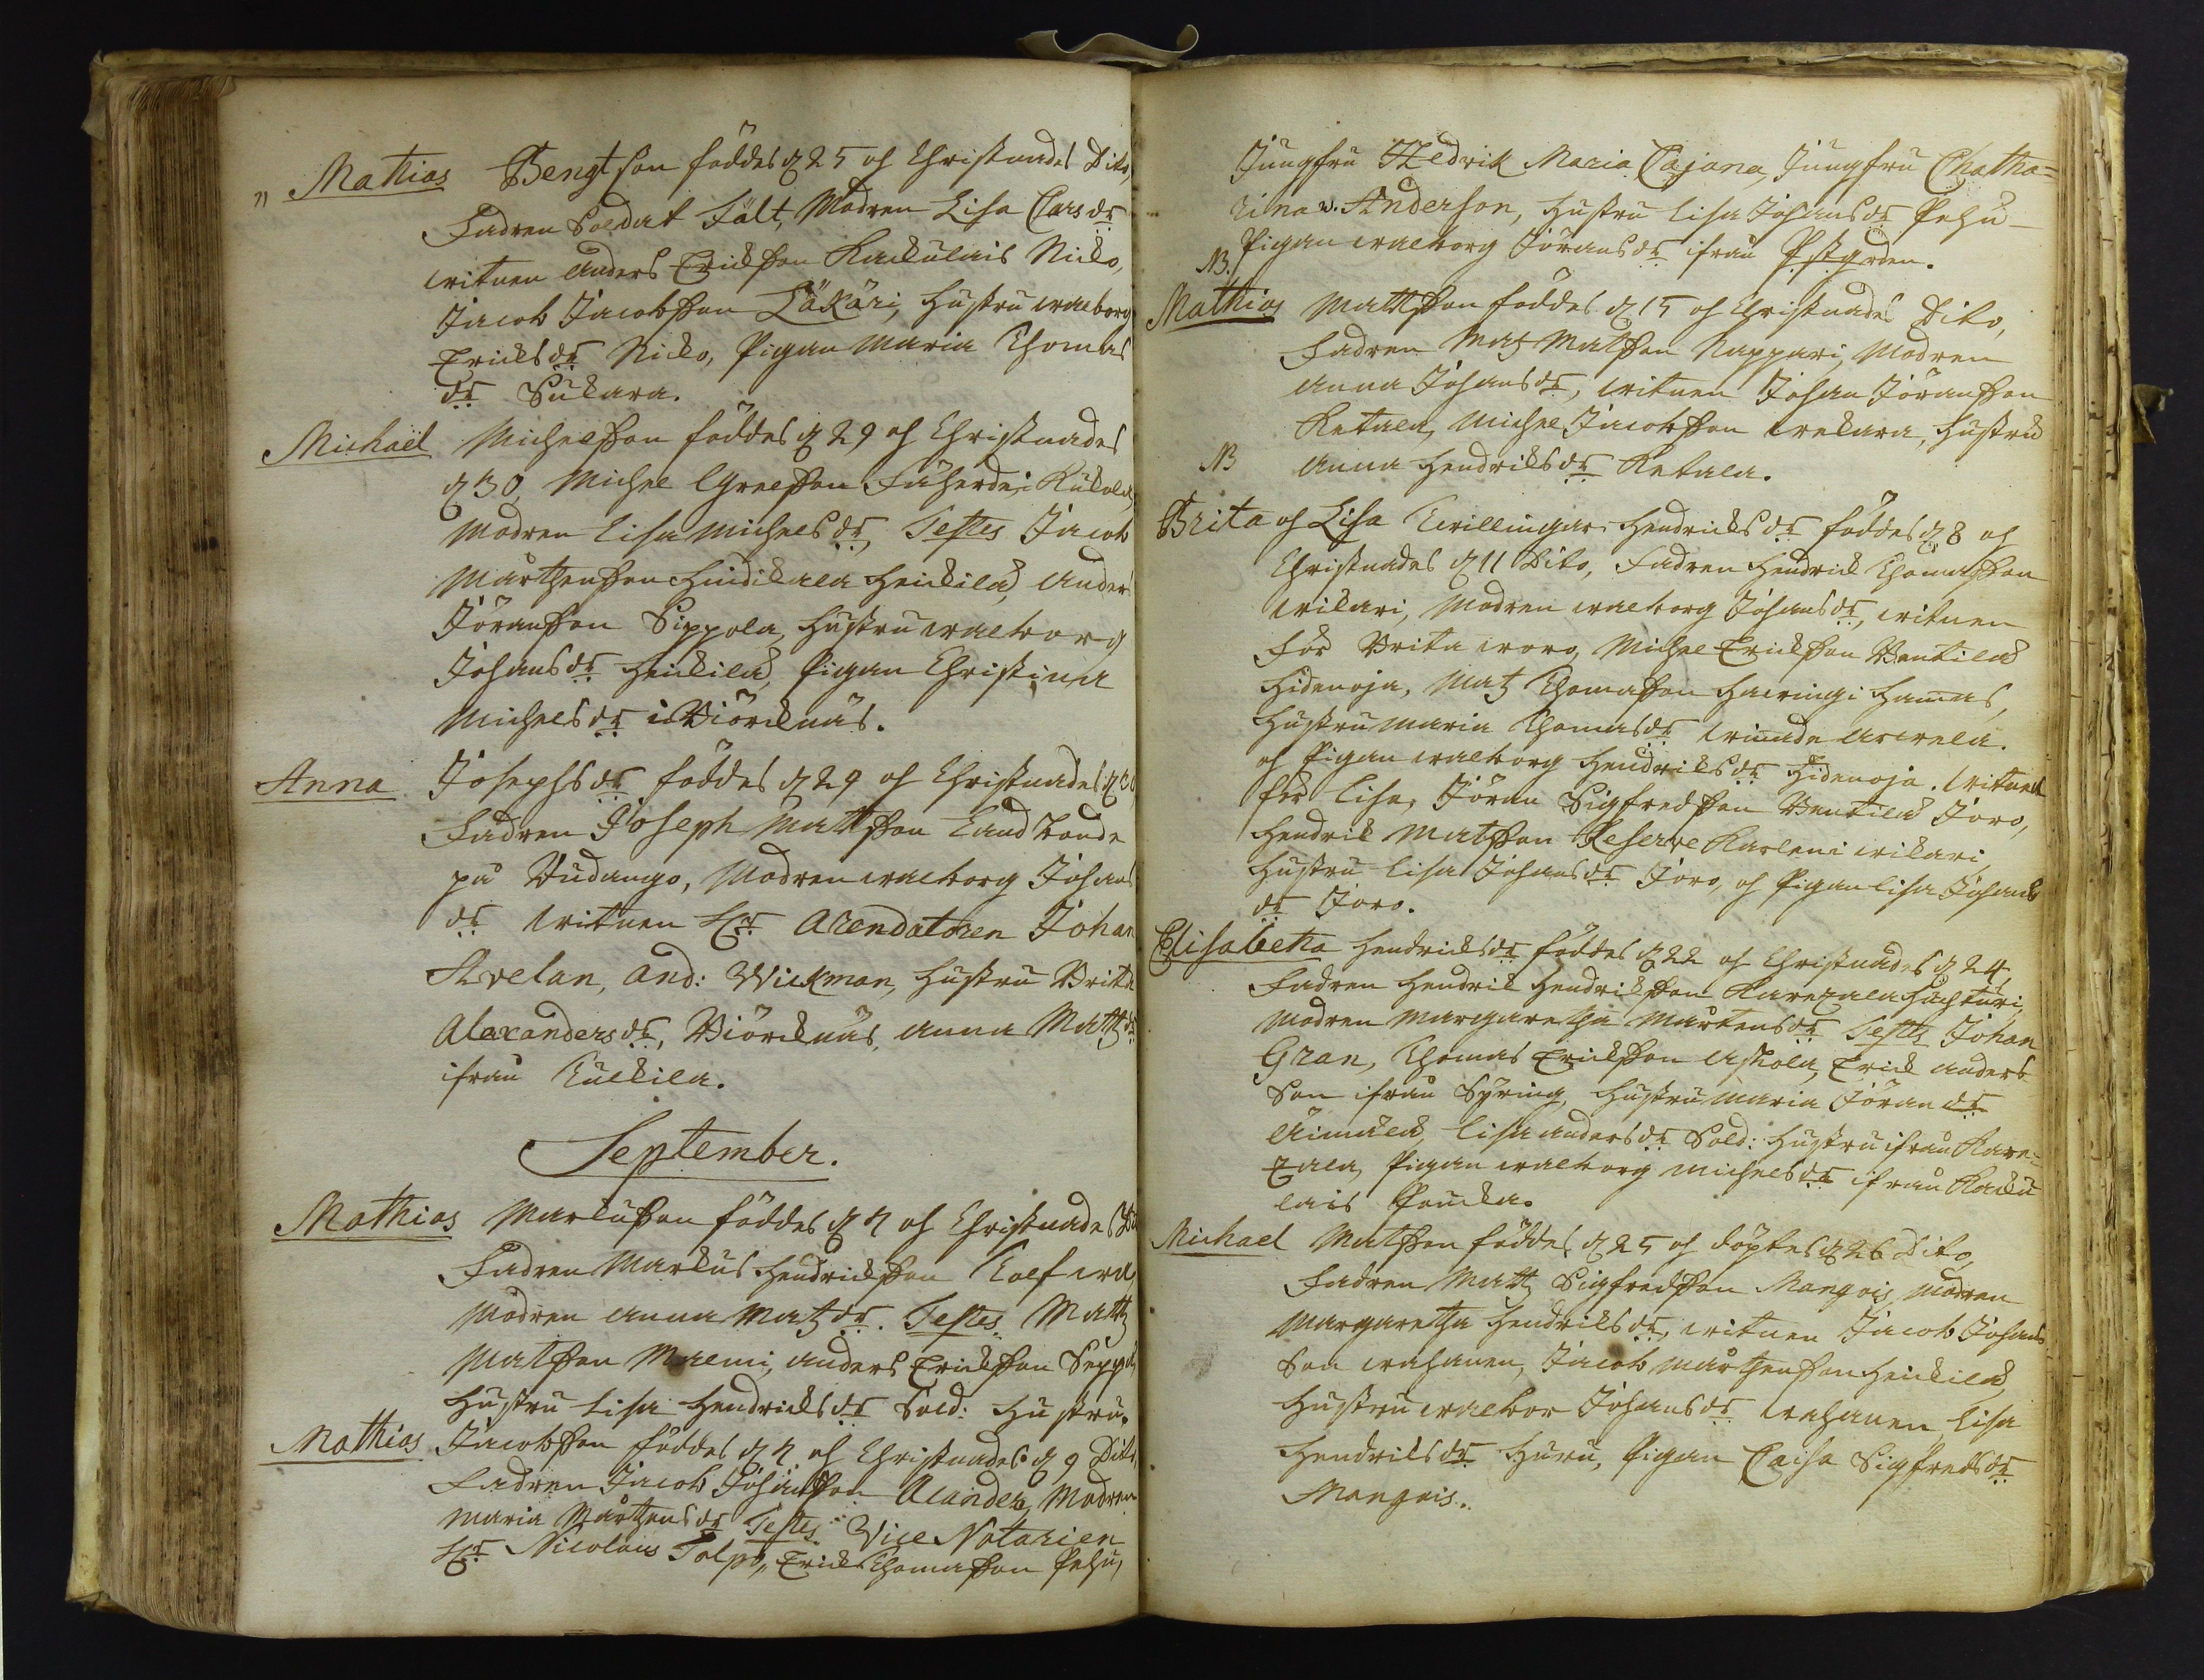 Mathias Bengtson föddes d 25 och Christnades Dito,
Fadren Soldat Fält, Modren Lisa Larsdr
witnen Anders Erickson Kackulais Nicko,
Jacob Jacobsson Läkäri, hustru walborg
Ericksdr Nicko, Pigan Maria Thomas
dr Sukara.
Michaël Michelsson föddes d 29 och Christnades
d 30, Michel
Modren Lisa Michelsdr, Testes Jacob
Mårthensson Heickilä, Anders
Jöransson Sippola, hustru walborg
Johansdr Heickilä, Pigan Christina
Michelsdr i Biörcknäs.
Anna Josephsdr föddes d 29 och Christnades d 30,
Fadren Joseph Mattsson Landbonde
på Modren walborg Johans
dr witnen Hr Arendatoren Johan
Avelan, And: Wickman, hustru Brita
Alexandersdr, Biörcknäs, Anna Mattzdr
ifrån Kulkila.
September.
Mathias Markusson föddes d 7 och Christnades Dito
Fadren Markus Hendricksson
Modren Anna Matzdr. Testes Mattz
Matsson Mälmi, Anders Ericksson
hustru Lisa Hendricksdr Sold: hustru.
Mathias Jacobsson föddes d 7 och Christnades d 9 Dito,
Fadren Jacob Johansson Alander, Modren
Maria Mårthensdr Testes Vice Notarien
Hr Nicolaus Polpo, Erick Thomasson Pehu,
Jungfru Hedvik Maria Cajana, Jungfru Chatha=
rina Anderson, hustru Lisa Johansdr Pehu
Pigan walborg Jöransdr ifrån Pstgrden.
NB.
Mathias Mattsson föddes d 15 och Christnades Dito,
Fadren Matz Matsson Nappari, Modren
Anna Johansdr, witnen Johan Jöransson
Ketala, Michel Jacobsson hustru
NB Anna Hendriksdr Ketala.
Brita och Lisa Twillingar Hendricksdr föddes d 8 och
Christnades d 11 Dito, Fadren Hendrick Thomasson
wikari, Modren walborg Johansdr, witnen
för Brita woro, Michel Ericksson Bentilä
Hidenoja, Matz Thomasson
hustru Maria Thomasdr
och Pigan walborg Hendriksdr Hidenoja. witnen
för Lisa, Jöran Sigfredsson Bentilä Joro,
Hendrik Matsson Reserve Karl en i wikari
hustru Lisa Johansdr Joro, och Pigan Lisa Johans
dr Joro.
Elisabetha Hendricksdr föddes d 22 och Christnades d 24,
Fadren Hendrik Hendricksson
Modren Margaretha Mårtensdr Testes Johan
Gran, Thomas Ericksson Askola, Erick Anders
Son ifrån Spring, hustru Maria Jörandr
Lisa Andersdr Sold: hustru ifrån Kare=
Pigan walborg Michelsdr ifrån Kacku
lais
Michael Matsson föddes d 25 och döptes d 26 Dito,
Fadren Mattz Sigfredsson Mangois, Modren
Margaretha Hendriksdr, witnen Jacob Johans
Son wahanen, Jacob Mårthensson Heickilä,
hustru walbor Johansdr wahanen, Lisa
Hendriksdr Huru, Pigan Caisa Sigfredsdr
Mangois.